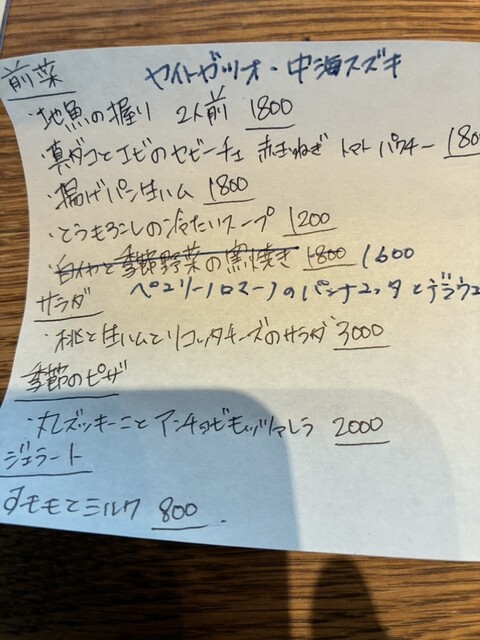 前菜 ヤイトガツオ・中海スズキ
・地魚の握り 2人前 1800
・真ダコとエビのセビーチェ 赤玉ねぎ トマト パクチー 180
・揚げパン生ハム 1800
・とうもろこしの冷たいスープ 1200
・白イカと季節野菜の窯焼き 1800 1600
ペコリーノロマーノのパンナコッタとデラウェ
サラダ
・桃と生ハムとリコッタチーズのサラダ 3000
季節のピザ
・丸ズッキーニとアンチョビモッツァレラ 2000
ジェラート
すももとミルク 800